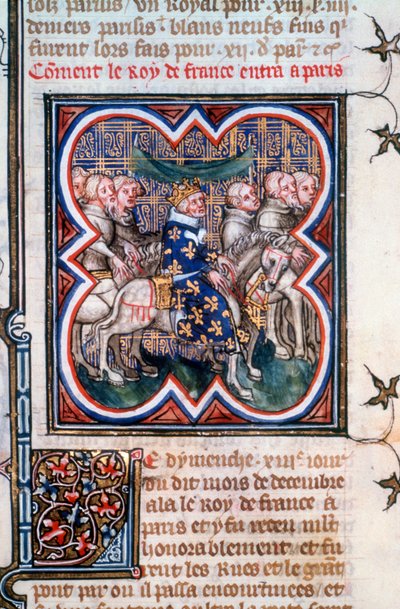 solz parisis / ou Royal pour .xiii. s. iiii.
deniers parisis. blans neufs fins qͥ
furent lors fais pour .xii. d̄ paꝛ. ⁊c
Cōment le Roy de france entra a paris
Le dymenche .xiiiͤ. iour
du dit mois de decembre
ala le roy de france a
paris et y fu receu mlt̄
honorablement / et fu
rent les Rues et le grāt
pont par ou il passa encourtinees / et